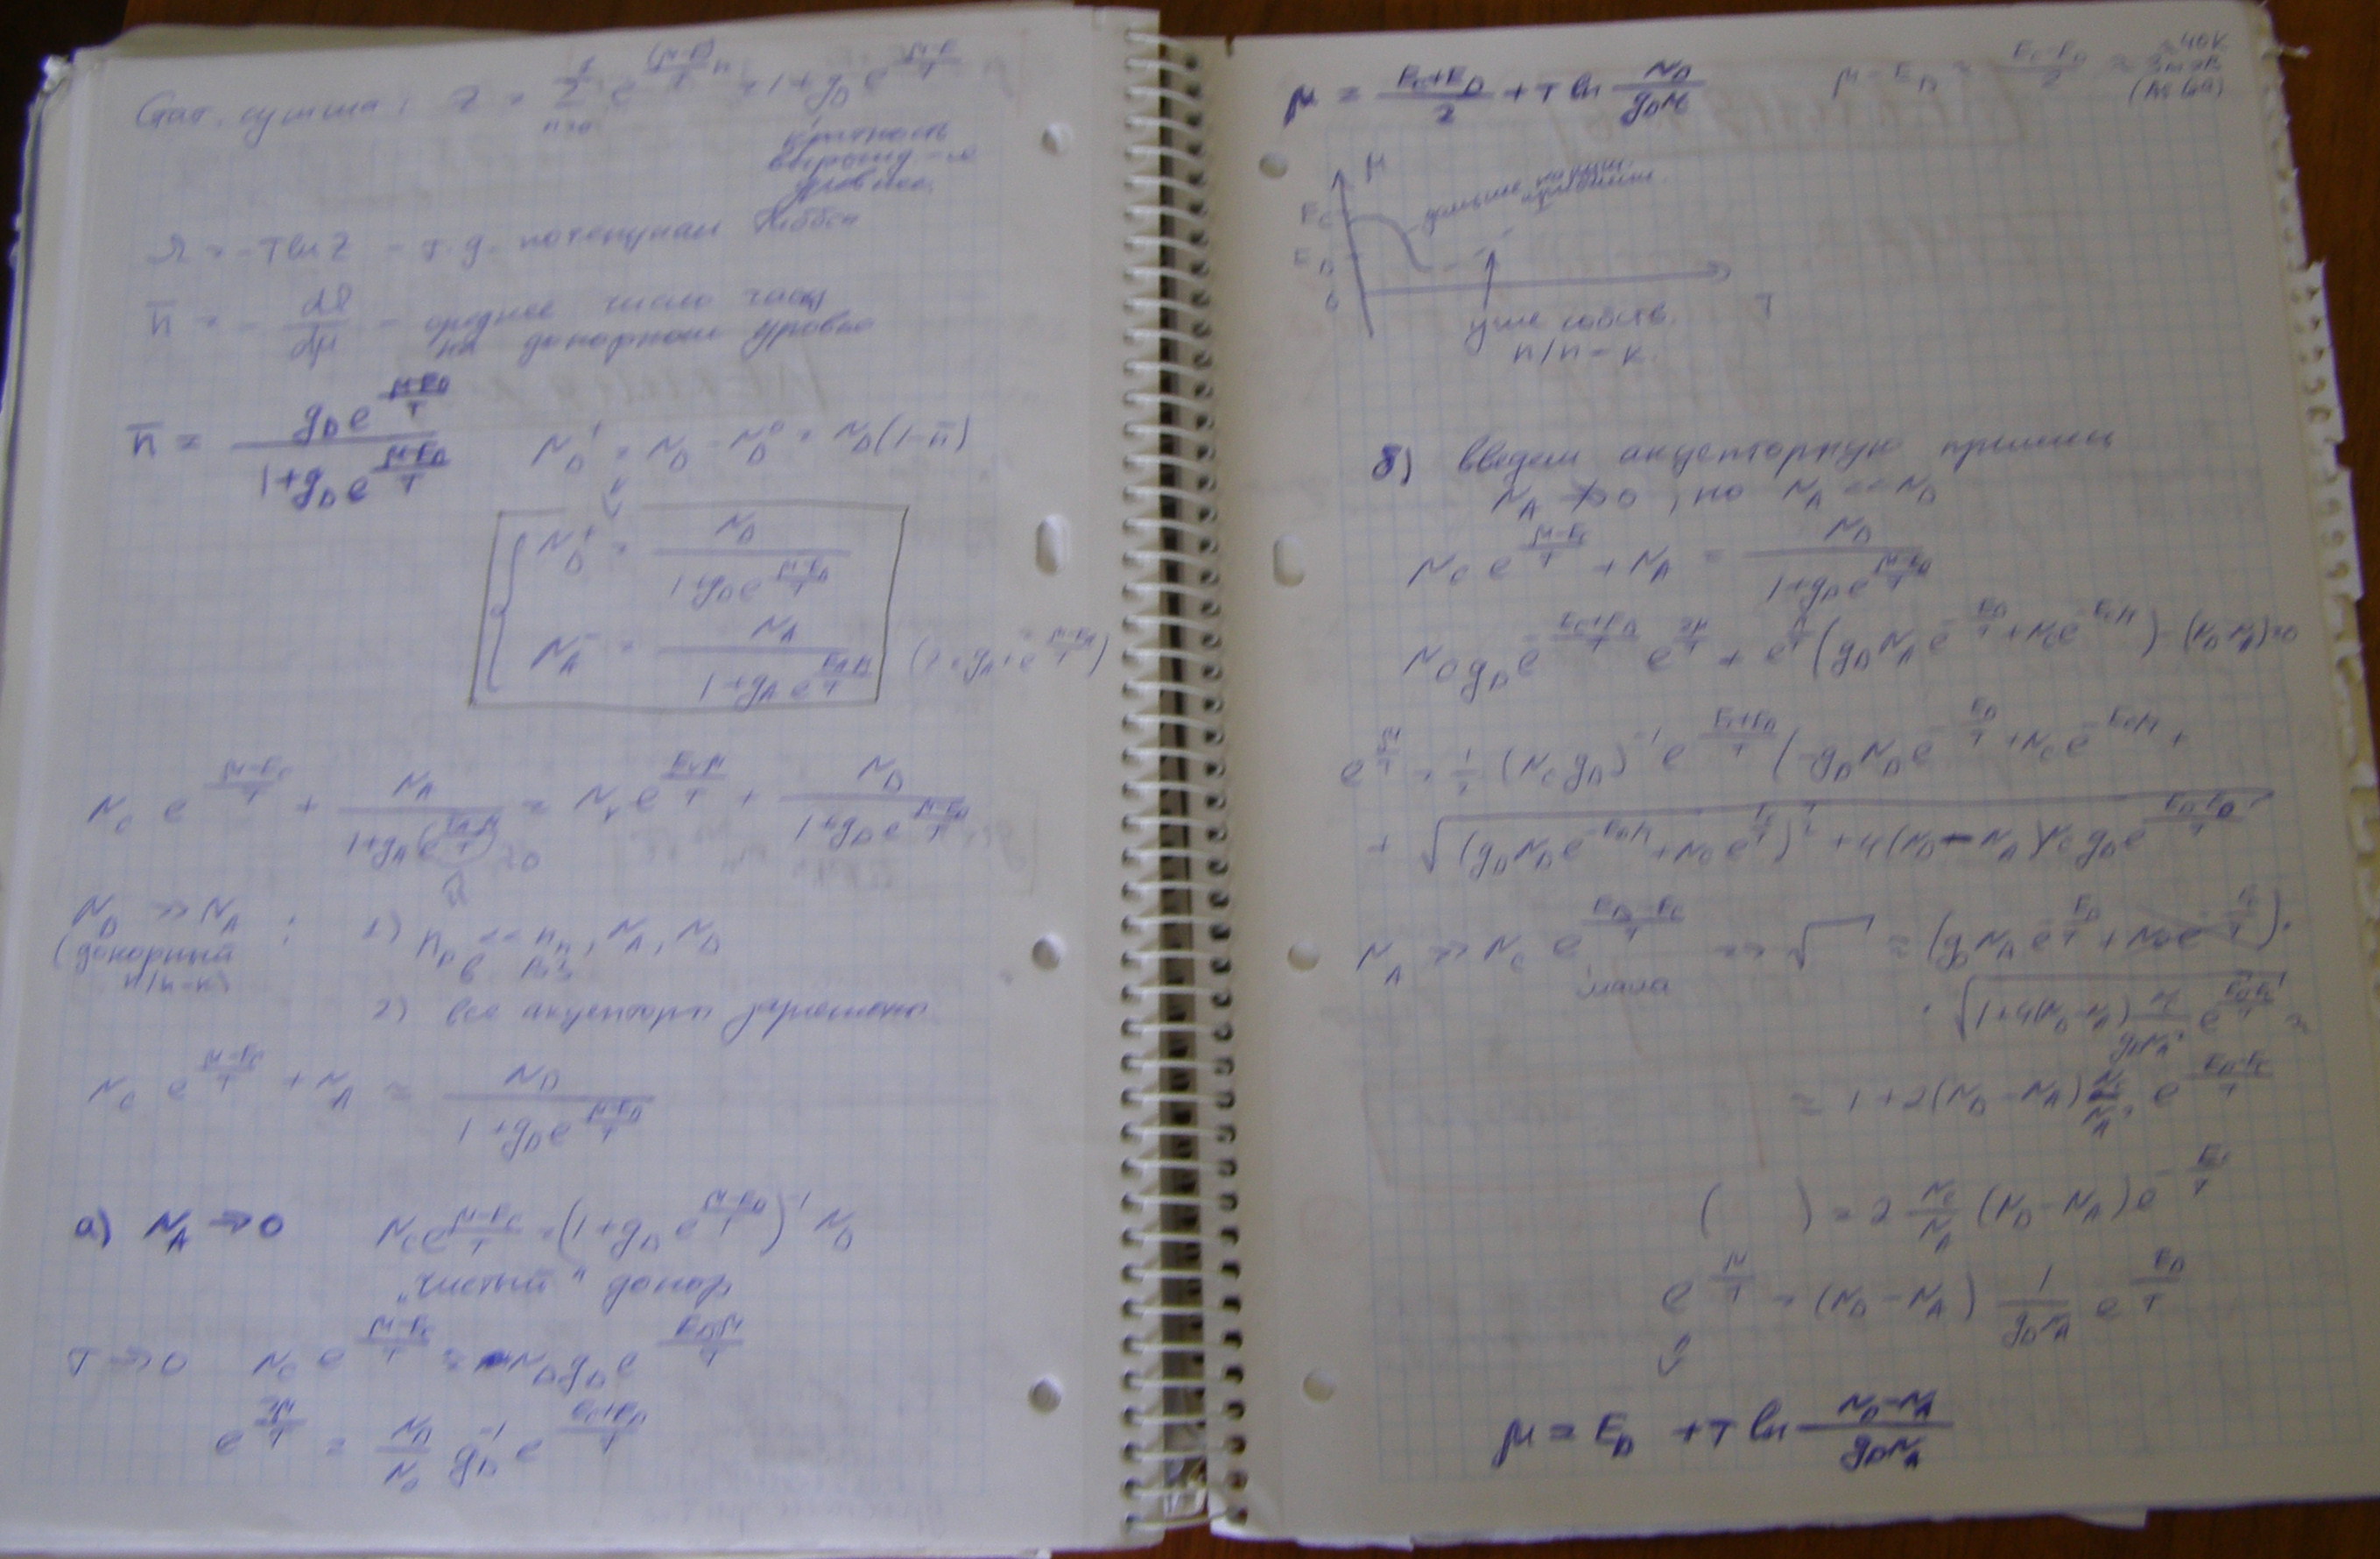 Стат. сумма: Z = Σ_{n=0}^{1} e^{(μ-E)n/T} = 1+g_D e^{(μ-E)/T}
кратность
вырожд-я
уровней
Ω = -T ln Z - т.д. потенциал Гиббса
n̄ = - dΩ/dμ - среднее число частиц
на донорном уровне
n̄ = g_D e^{(μ-E_D)/T} / (1+g_D e^{(μ-E_D)/T})   N_D^+ = N_D - N_D^0 = N_D(1-n̄)
N_D^+ = N_D / (1+g_D e^{(μ-E_D)/T})
N_A^- = N_A / (1+g_A e^{(E_A-μ)/T})
N_c e^{(μ-E_c)/T} + N_A / (1+g_A e^{(E_A-μ)/T}) = N_v e^{(E_v-μ)/T} + N_D / (1+g_D e^{(μ-E_D)/T})
≈0
N_D >> N_A : 1) n_p << n_n, N_A, N_D
(донорный
п/п-к)
2) все акцепторы заряжены
N_c e^{(μ-E_c)/T} + N_A = N_D / (1+g_D e^{(μ-E_D)/T})
а) N_A → 0   N_c e^{(μ-E_c)/T} = (1+g_D e^{(μ-E_D)/T})^{-1} N_D
"чистый" донор
T → 0   N_c e^{(μ-E_c)/T} = N_D g_D e^{(E_D-μ)/T}
e^{2μ/T} = N_D/N_c g_D^{-1} e^{(E_c+E_D)/T}
μ = (E_c+E_D)/2 + T ln N_D/(g_D N_c)   μ - E_D = (E_c-E_D)/2
μ
E_c
E_D
0
T
уже собств.
п/п-к
б) введем акцепторную примесь
N_A ≠ 0, но N_A << N_D
N_c e^{(μ-E_c)/T} + N_A = N_D / (1+g_D e^{(μ-E_D)/T})
N_c g_D e^{-(E_c+E_D)/T} e^{2μ/T} + e^{μ/T} (g_D N_A e^{-E_D/T} + N_c e^{-E_c/T}) - (N_D-N_A)=0
e^{μ/T} = 1/2 (N_c g_D)^{-1} e^{(E_c+E_D)/T} (-g_D N_D e^{-E_D/T} + N_c e^{-E_c/T} +
+ √((g_D N_D e^{-E_D/T} + N_c e^{-E_c/T})^2 + 4(N_D-N_A) N_c g_D e^{
N_A >> N_c e^{(E_D-E_c)/T} => √ = (g_D N_A e^{-E_D/T} + N_c e^{-E_c/T}) ·
мала
· √(1+4(N_D-N_A) N_c/(g_D N_A^2) e^{(E_D-E_c)/T}) ≈
≈ 1+2(N_D-N_A) N_c/N_A^2 e^{(E_D-E_c)/T}
( ) = 2 N_c/N_A (N_D-N_A) e^{-E_c/T}
e^{μ/T} = (N_D-N_A) 1/(g_D N_A) e^{E_D/T}
μ = E_D + T ln (N_D-N_A)/(g_D N_A)